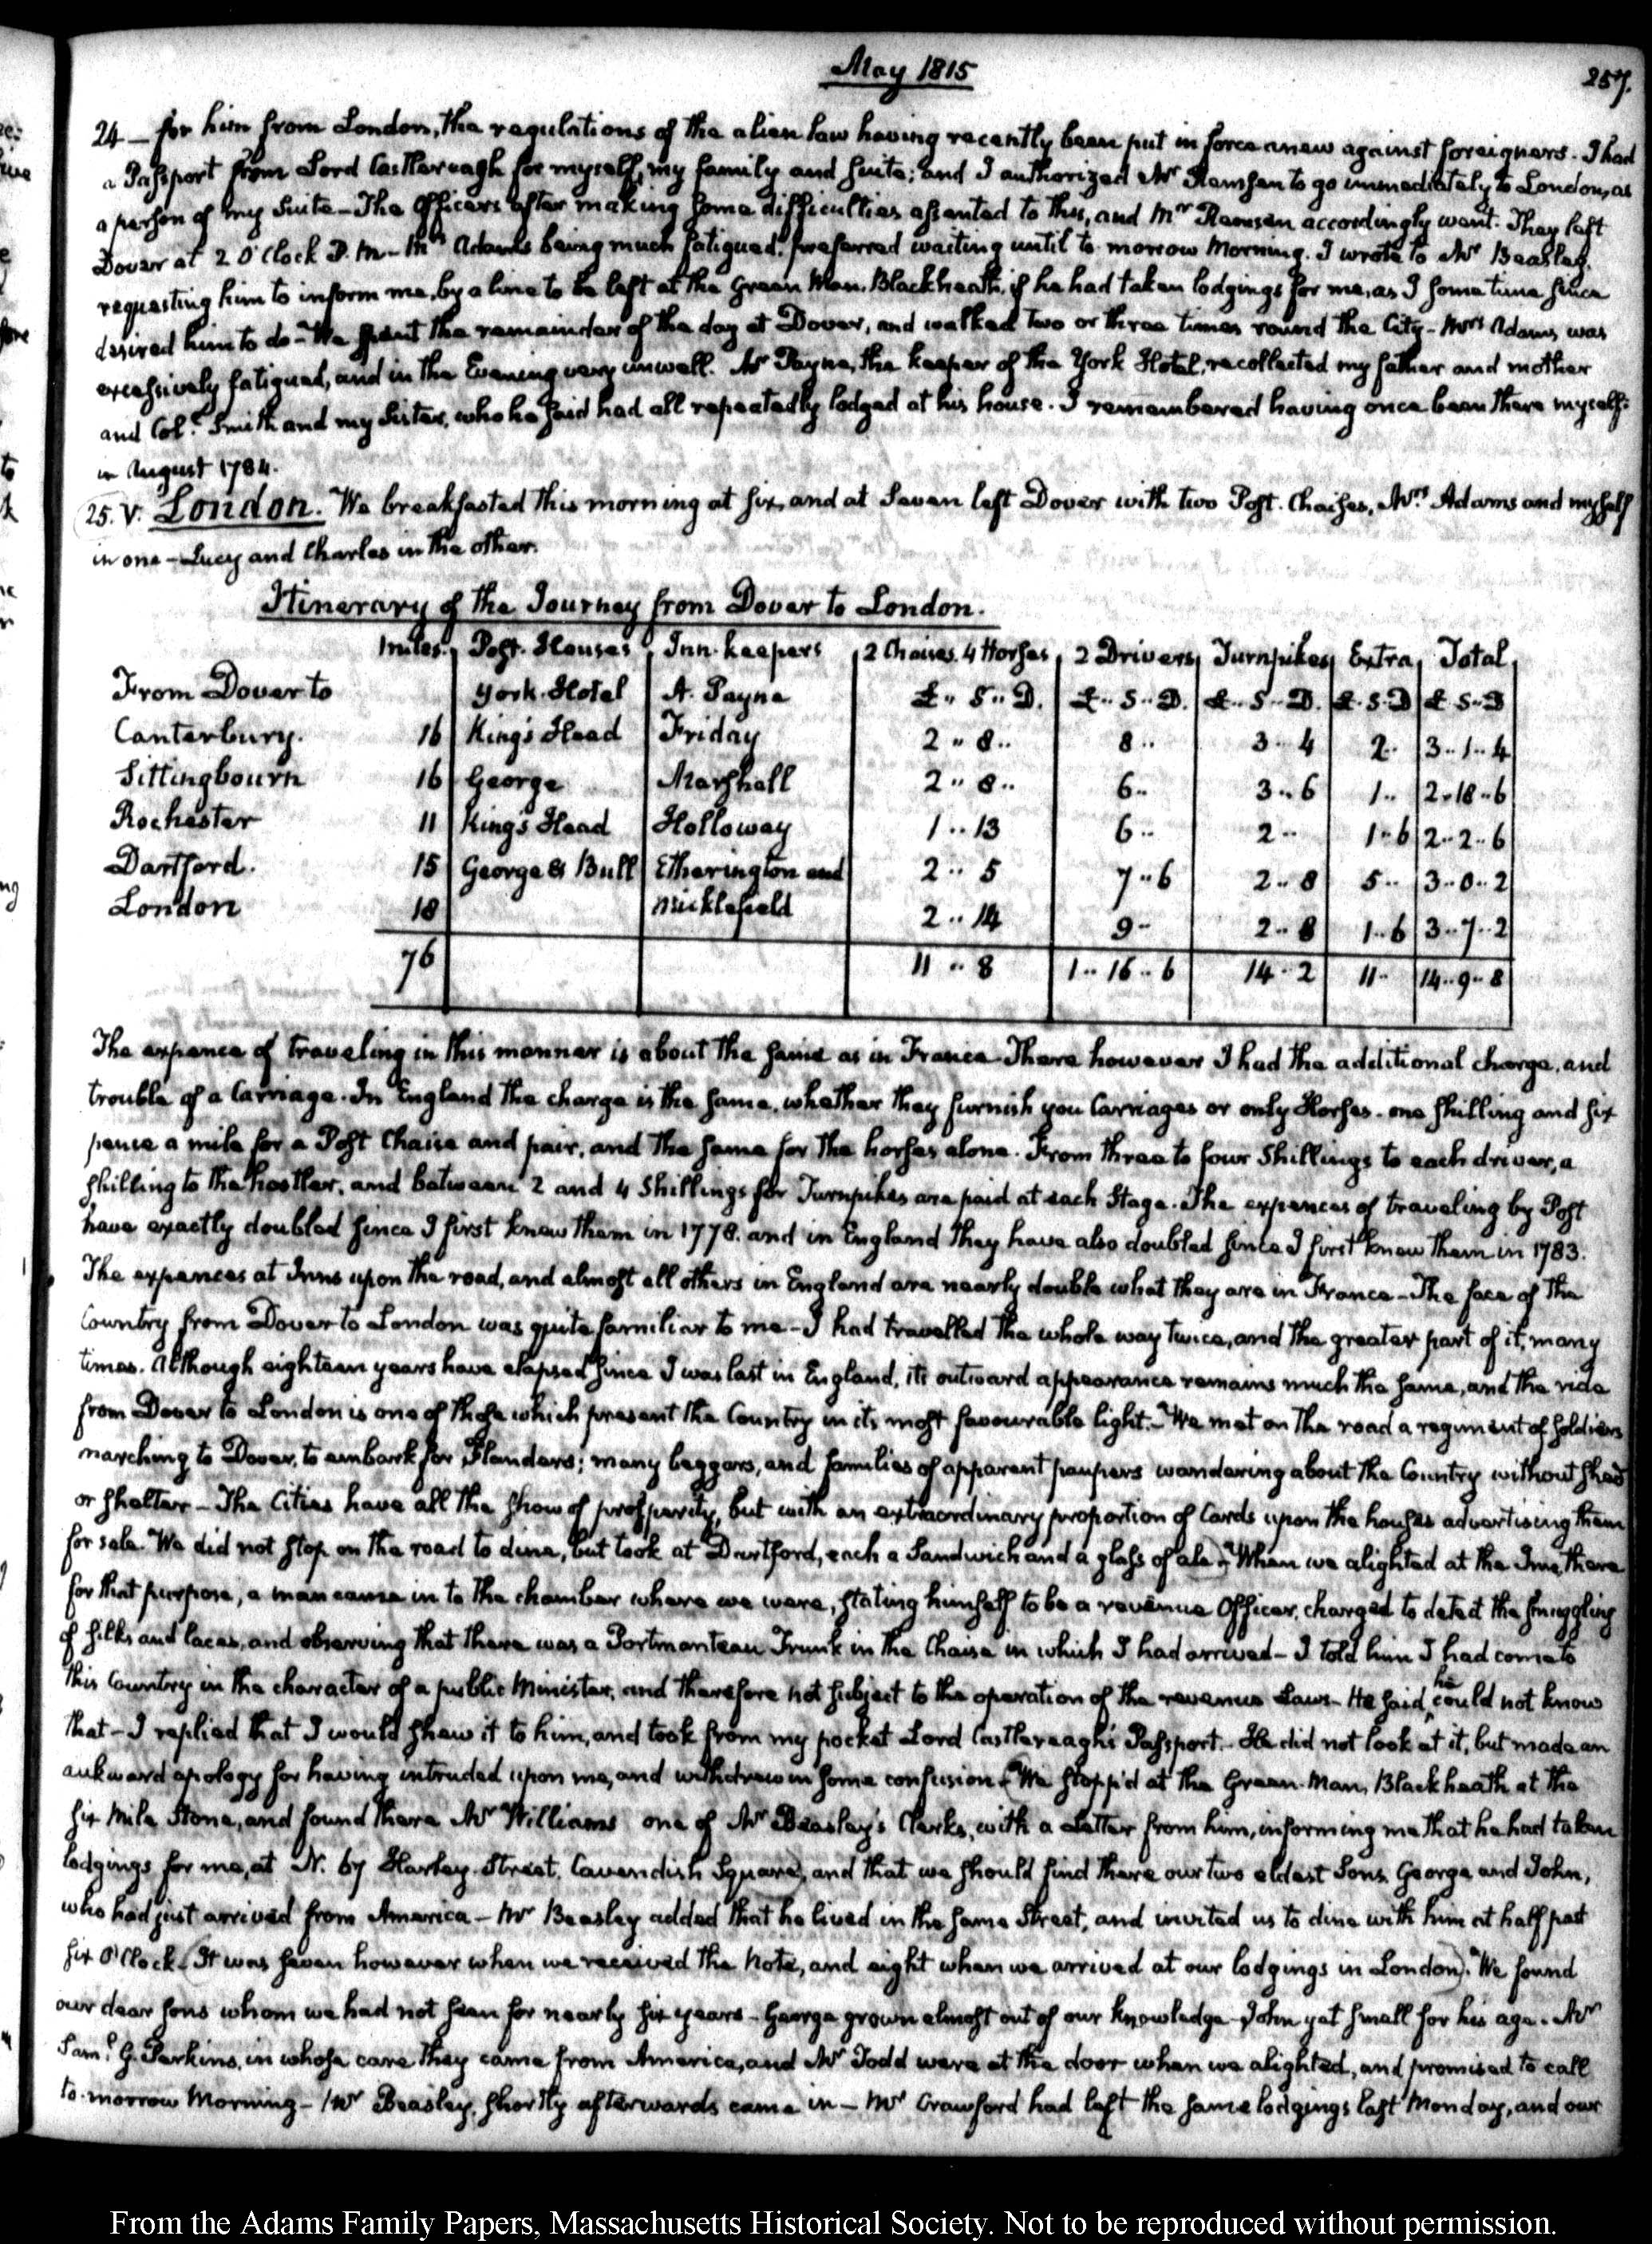 May 1815
257.
24 — for him from London, the regulations of the alien law having recently been put in force anew against foreigners. I had
a Passport from Lord Castlereagh for myself, my family and suite; and I authorized Mr Ramsen to go immediately to London, as
a person of my Suite — The Officers after making some difficulties assented to this, and Mr Ramsen accordingly went. They left
Dover at 2 O'Clock P.M — Mrs Adams being much fatigued, preferred waiting until to-morrow Morning. I wrote to Mr Beasley,
requesting him to inform me, by a line to be left at the Green Man, Blackheath, if he had taken lodgings for me, as I some time since
desired him to do — We spent the remainder of the day at Dover, and walked two or three times round the City — Mrs Adams was
excessively fatigued, and in the Evening very unwell. Mr Payne, the keeper of the York Hotel, recollected my father and mother
and Col. Smith and my Sister, who he said had all repeatedly lodged at his house. I remembered having once been there myself
in August 1784.
25. V. London. We breakfasted this morning at six, and at Seven left Dover with two Post-Chaises, Mrs Adams and myself
in one — Lucy and Charles in the other.
Itinerary of the Journey from Dover to London.
Miles. Post-Houses Inn-keepers 2 Chaises. 4 Horses 2 Drivers Turnpikes Extra Total
From Dover to York-Hotel A. Payne £.. S.. D. £.. S.. D. £.. S.. D. £. S. D £ S.. D
Canterbury. 16 King's Head Friday 2 .. 8.. 8 .. 3.. 4 2. 3.. 1.. 4
Sittingbourn 16 George Marshall 2.. 8.. 6.. 3..6 1.. 2..18..6
Rochester 11 King's Head Holloway 1 .. 13 6.. 2.. 1..6 2..2..6
Dartford. 15 George & Bull Etherington and 2.. 5 7..6 2..8 5.. 3..0..2
London 18 Micklefield 2.. 14 9.. 2..8 1..6 3..7..2
76 11 .. 8 1.. 16.. 6 14.. 2 11.. 14..9..8
The expence of traveling in this manner is about the same as in France. There however I had the additional charge, and
trouble of a Carriage. In England the charge is the same, whether they furnish you Carriages or only Horses. one shilling and six
pence a mile for a Post Chaise and pair, and the same for the horses alone. From three to four Shillings to each driver, a
shilling to the hostler, and between 2 and 4 Shillings for Turnpikes are paid at each Stage. The expences of traveling by Post
have exactly doubled since I first knew them in 1778. and in England they have also doubled since I first knew them in 1783.
The expences at Inns upon the road, and almost all others in England are nearly double what they are in France — The face of the
Country from Dover to London was quite familiar to me — I had travelled the whole way twice, and the greater part of it, many
times. Although eighteen years have elapsed since I was last in England, its outward appearance remains much the same, and the ride
from Dover to London is one of those which present the Country in its most favourable light. — We met on the road a regiment of soldiers
marching to Dover, to embark for Flanders; many beggars, and families of apparent paupers wandering about the Country without shed
or shelter — The Cities have all the show of prosperity, but with an extraordinary proportion of Cards upon the houses advertising them
for sale. We did not stop on the road to dine, but took at Dartford, each a Sandwich and a glass of ale) — When we alighted at the Inn there
for that purpose, a man came in to the chamber where we were, stating himself to be a revenue Officer, charged to detect the smuggling
of silks and laces, and observing that there was a Portmanteau Trunk in the Chaise in which I had arrived — I told him I had come to
this Country in the character of a public Minister, and therefore not subject to the operation of the revenue Laws — He said, he could not know
that — I replied that I would shew it to him, and took from my pocket Lord Castlereagh's Passport. — He did not look at it, but made an
aukward apology for having intruded upon me, and withdrew in some confusion — (We stopp'd at the Green-Man, Blackheath at the
six Mile Stone, and found there Mr Williams one of Mr Beasley's Clerks, with a Letter from him, informing me that he had taken
lodgings for me, at N. 67 Harley-Street, Cavendish Square), and that we should find there our two eldest Sons, George and John,
who had just arrived from America — Mr Beasley added that he lived in the same Street, and invited us to dine with him at half past
six O'Clock — (It was seven however when we received the Note, and eight when we arrived at our lodgings in London). We found
our dear sons whom we had not seen for nearly six years — George grown almost out of our knowledge — John yet small for his age. Mr
Saml. G. Perkins, in whose care they came from America, and Mr Todd were at the door when we alighted, and promised to call
to-morrow Morning — Mr Beasley, shortly afterwards came in — Mr Crawford had left the same lodgings last Monday, and our
From the Adams Family Papers, Massachusetts Historical Society. Not to be reproduced without permission.